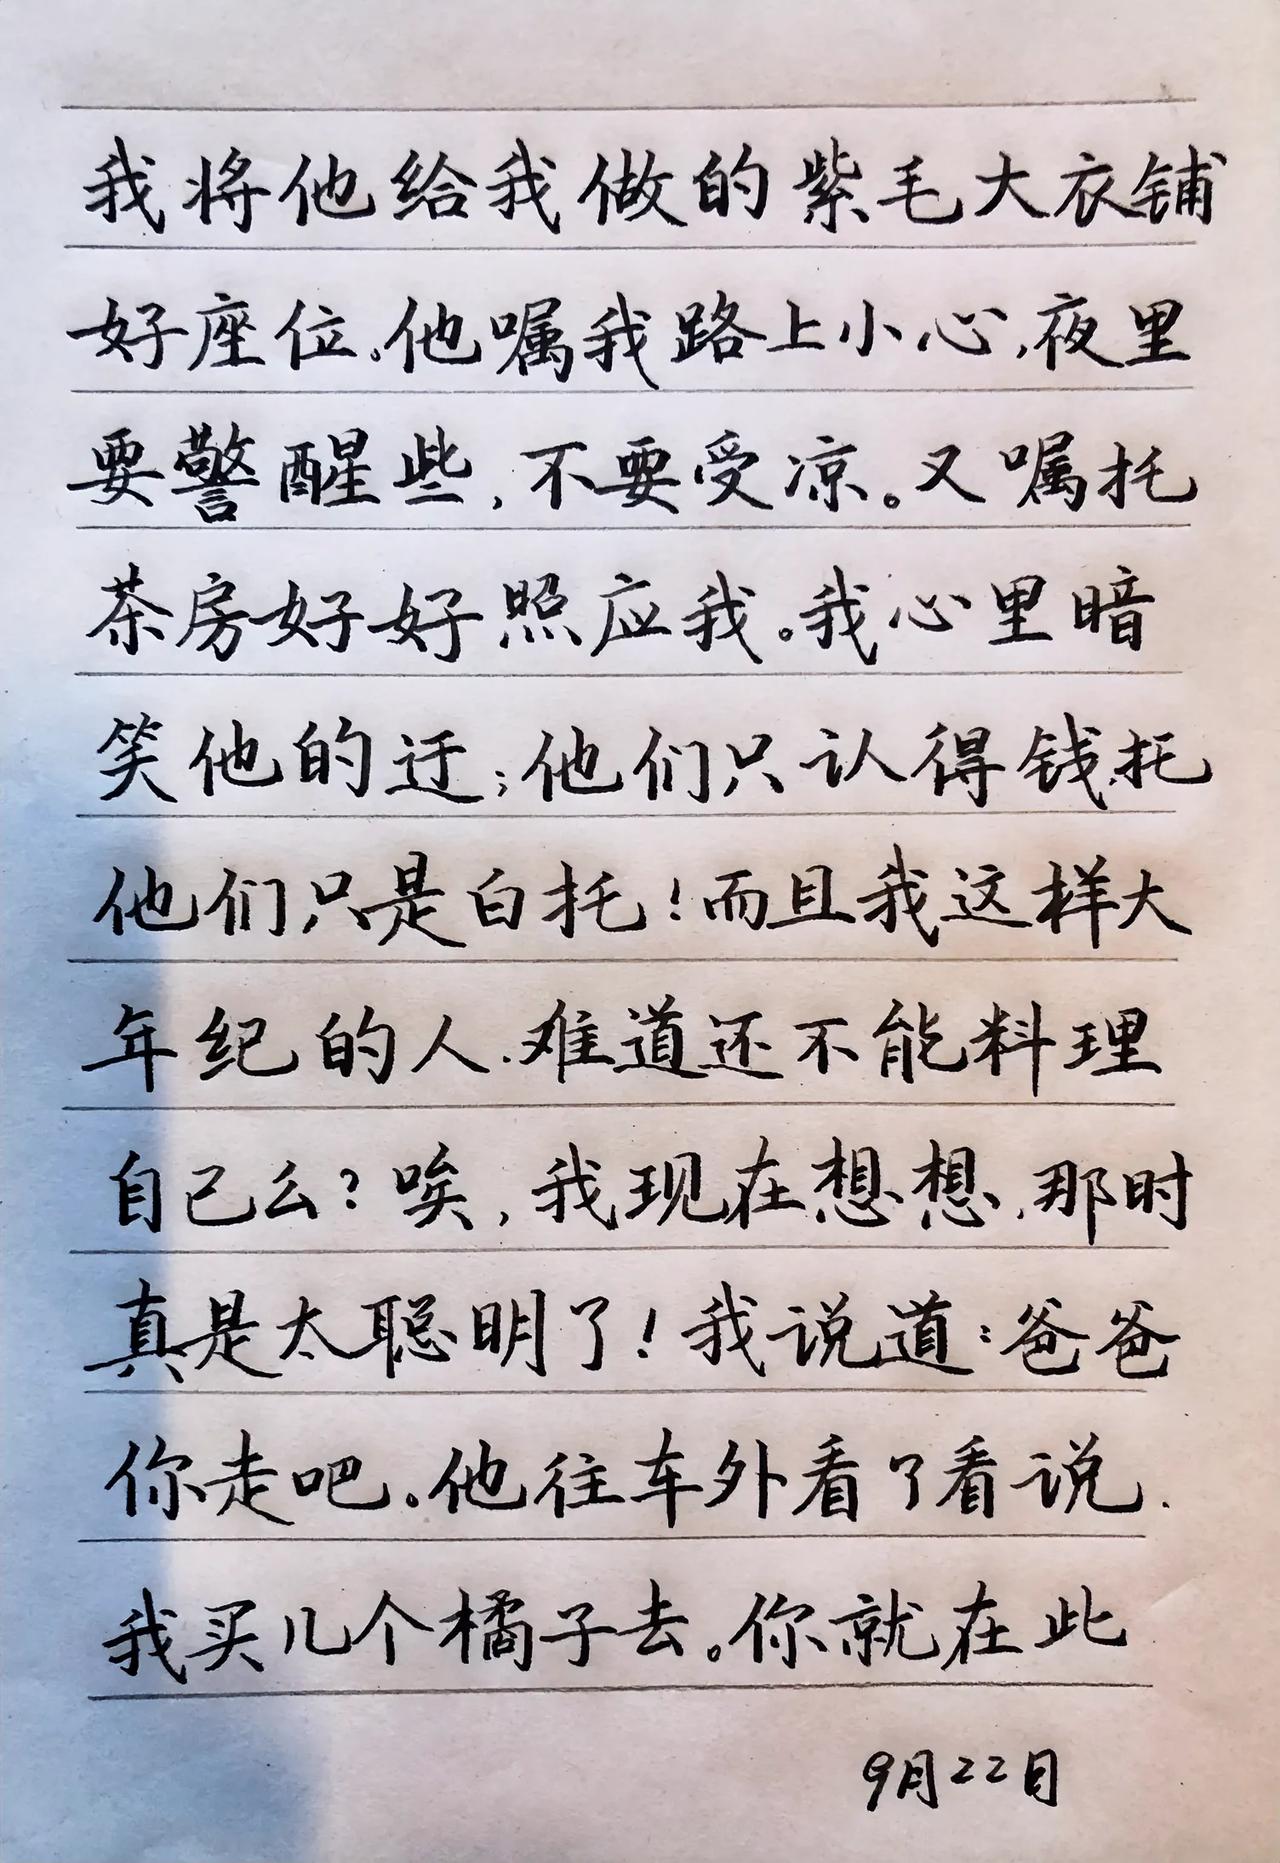 我将他给我做的紫毛大衣铺
好座位。他嘱我路上小心,夜里
要警醒些,不要受凉。又嘱托
茶房好好照应我。我心里暗
笑他的迂;他们只认得钱,托
他们只是白托!而且我这样大
年纪的人.难道还不能料理
自己么?唉,我现在想想,那时
真是太聪明了!我说道:爸爸
你走吧。他往车外看了看说.
我买几个橘子去。你就在此
9月22日